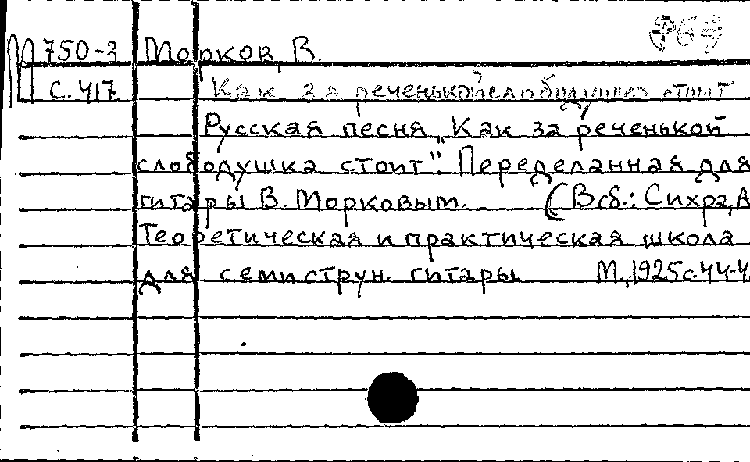 М 750-3 Морков, В
С. 417 Как за реченькой слободушка стоит
Русская песня „Как за реченькой
слободушка стоит". Переделанная для
гитары В. Морковым. (В сб.: Сихра, А
Теоретическая и практическая школа
для семиструн. гитары М., 1925 с. 44-4